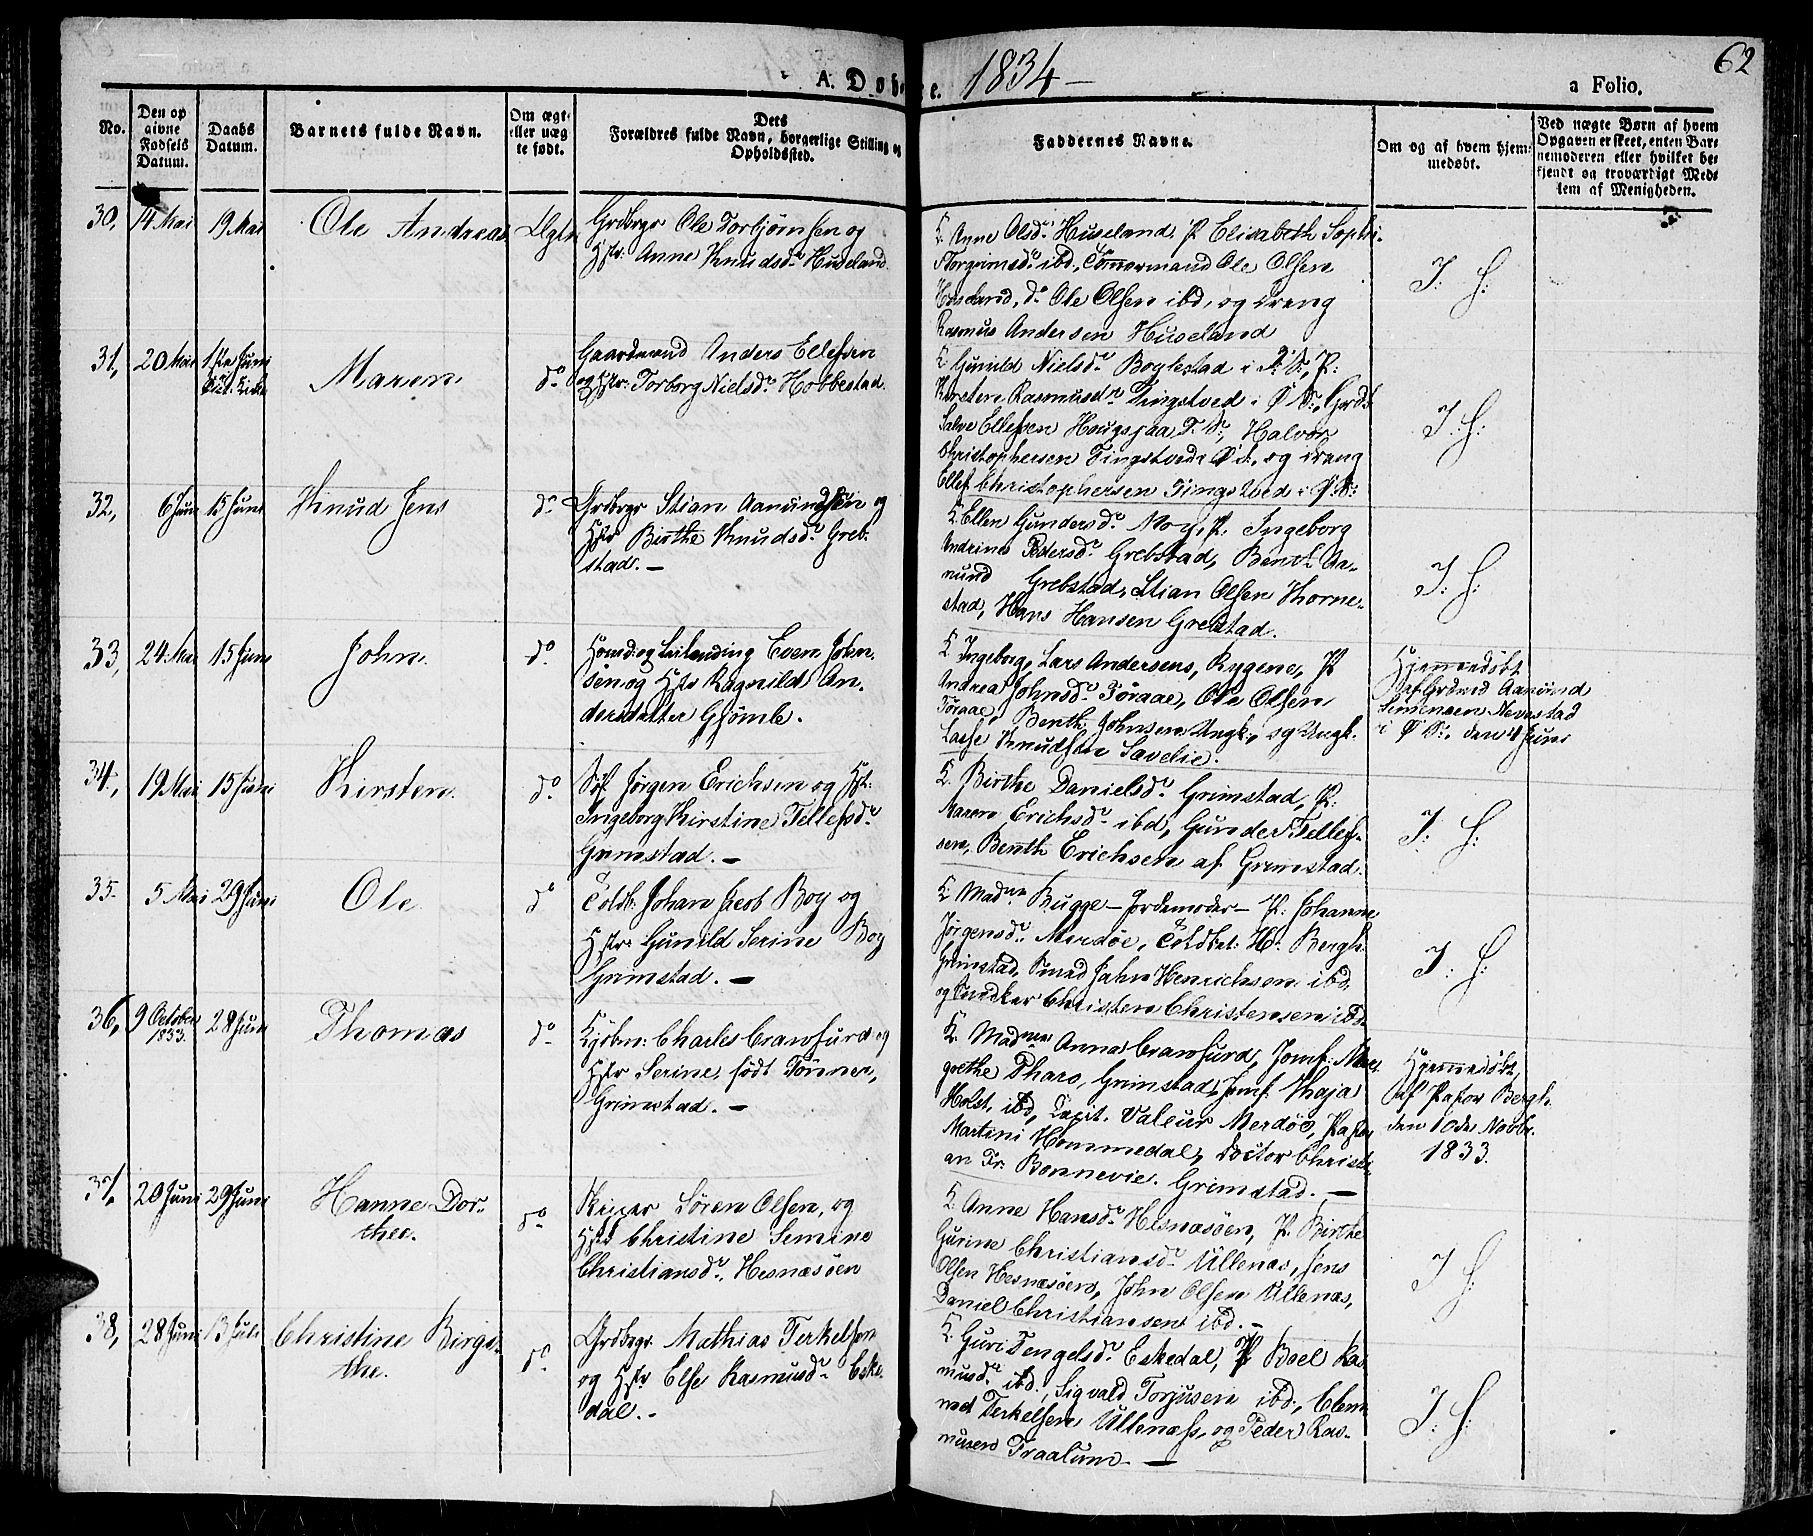 62
A. Døbte. 1834 —
a Folio.
No.
Den op
givne
Fødsels
Datum.
Daabs
Datum.
Barnets fulde Navn.
Om ægte
eller uæg
te født.
Dets
Forældres fulde Navn, borgerlige Stilling og
Opholdssted.
Faddernes Navne.
Om og af hvem hjem:
medøbt.
Ved uægte Børn af hvem
Opgaven er skeet, enten Bar
nemoderen eller hvilket be
kjendt og troværdigt Med
lem af Menigheden.
30, 14 Mai 19 Mai Ole Andreas
Grdbrgr Ole Torbjørnsen og
Hstr: Anne Knudsdr. Huseland
K. Anne Olsdr. Huseland, P. Elisabeth Sophi
Torgrimsdr. ibd, Ole Olsen
Huseland, do Ole Olsen ibd, og Dreng
Rasmus Andersen Huseland
I: H:
31, 20 Mai 1ste Juni Maren do
Gaardmand Anders Ellefsen
og Hstr: Torborg Nielsdr. Hobbestad
K. Gunild Nielsdr. Boglestad i
Kirsten Rasmusdr. Tingstved i Ø S:,
Salve Ellefsen Haugsjaa, Halvor
Christophersen Tingstved Ø S:, og Dreng
Ellef Christophersen Tingstved i Ø S:
I: H:
32, 6 Juni 15 Juni Knud Jens do
Grdbrgr Stian Aanundsen og
Hstr Birthe Knudsdr. Greb:
stad. —
K. Ellen Gundersdr. Moy, P. Ingeborg
Andrine Pedersdr. Grebstad, Bent Aa-
nund Grebstad, Stian Olsen Horne-
stad, Hans Hansen Grebstad.
I: H:
33, 24 Mai 15 Juni John. do
Huusmd: og Leilending Even John:
sen og Hstr Ragnild An-
dersdatter Gjömle.
K. Ingeborg, Lars Andersens, Rygene, P
Andrea Johnsdr. Töraae, Ole Olsen
Töraae, Benth Johnsen Ungk:, og Ungk.
Lasse Knudsen Savelie.
Hjemmedöbt
af Grdmd Aanund
Simensen Nevestad
i Ø S:, den 4 Juni
34, 19 Mai 15 Juni Kirsten. do
Söf. Jörgen Erichsen og Hst:
Ingeborg Kirstine Tellefsdr.
Grimstad. —
K. Birthe Danielsdr. Grimstad, P:
Maren Erichsdr. ibd, Gunder Tellef-
sen, Benth Erichsen af Grimstad.
I: H:
35. 5 Mai 29 Juni Ole do
Toldb: Johan Jacob Boy og
Hstr Gunild Serine Boy
Grimstad. —
K. Madme Bugge — Jordemoder — P. Johanne
Jörgensdr. Merdöe, Toldbet: H. Bergh:
Grimstad, Smed Jahn Henrichsen ibd
og Snedker Christen Christensen ibd
I: H:
36, 9 October 1833. 28 Juni Thomas do
Kjöbm: Charles Crawfurd og
Hstr Serine, födt Tönnes,
Grimstad. —
K. Madme Anna Crawfurd, Jomf: Mar
grethe Pharo, Grimstad, Jomf. Maja
Holst, ibd, Capit. Valeur Merdöe, Pastor
Martini Hommedal, Doctor Christi
an Fr. Bonnevie. Grimstad. —
Hjemmedöbt,
af Pastor Bergh.
den 10de Novbr.
1833.
37, 20 Juni 29 Juni Hanne Dor-
thee. do
Skiper Sören Olsen, og
Hstr Christine Semine
Christiansdr. Hesnæsöen
K. Anne Hansdr. Hesnæsöen, P. Birthe
Gurine Christiansdr. Ullenæs, Jens
Olsen Hesnæsöen, John Olsen Ullenæs,
Daniel Christiansen ibd. —
I: H:
38, 28 Juni 13 Juli Christine Birgi-
the. do
Grdbrgr. Mathias Terkelsen
og Hstr Else Rasmusdr. Eske
dal. —
K. Guri Tengelsdr. Eskedal, P Boel Ras
musdr. ibd., Sigvald Torjusen ibd, Clem
med Terkelsen Ullenæss, og Peder Ras-
musen Traalum —
I: H: